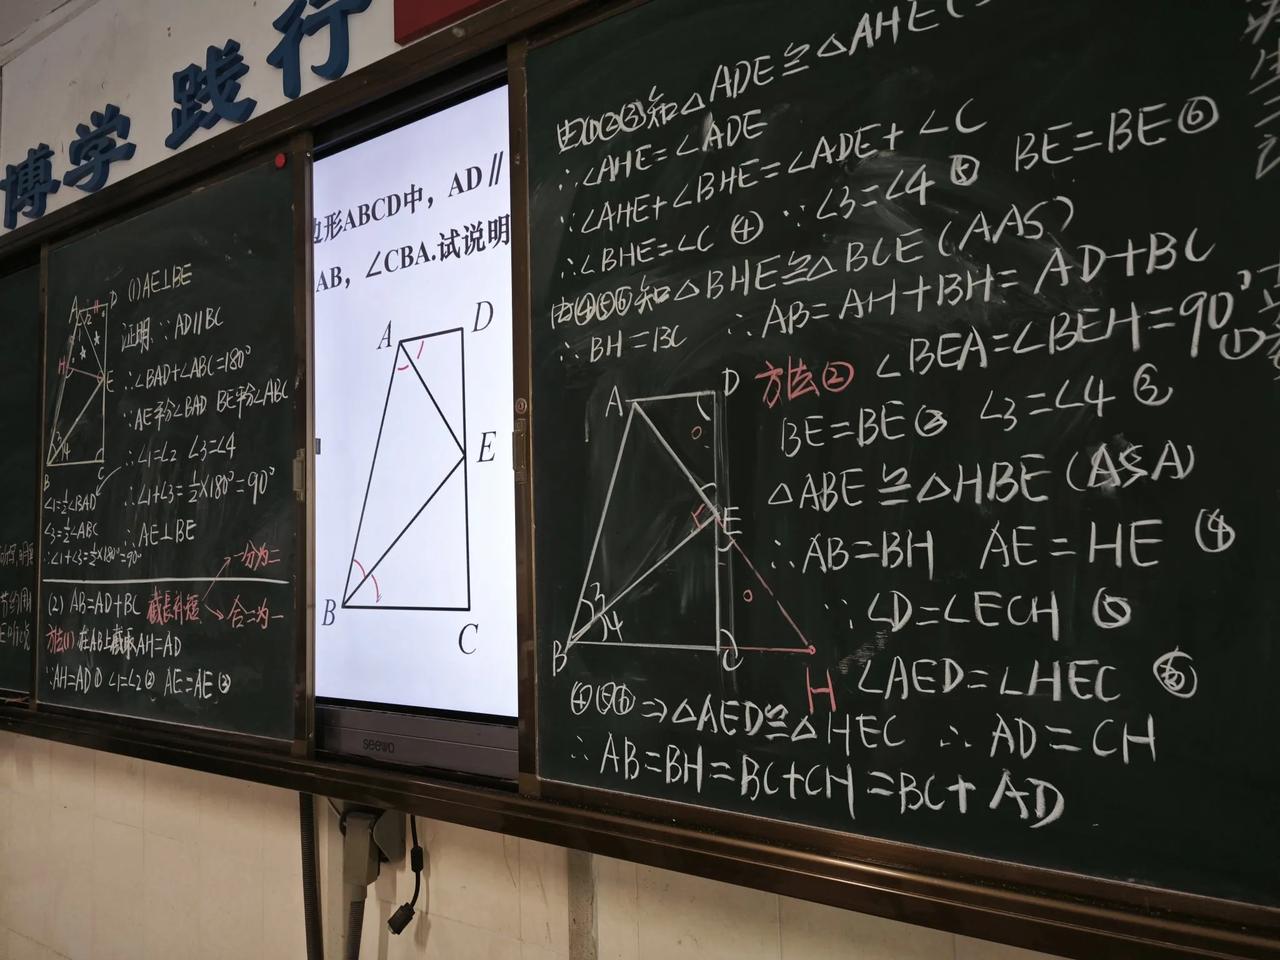 博学 践行
A
D
H
E
B
C
3
4
(1)AE⊥BE
证明:∵AD∥BC
∴∠BAD+∠ABC=180°
∵AE平分∠BAD BE平分∠ABC
∴∠1=∠2 ∠3=∠4
∴∠1+∠3=½×180°=90°
∴AE⊥BE
∠1=½∠BAD
∠3=½∠ABC
∴∠1+∠3=½×180°=90°
(2) AB=AD+BC 截长补短
一分为二
合二为一
方法(1) 在AB上截取AH=AD
∵AH=AD① ∠1=∠2② AE=AE③
边形ABCD中，AD∥
AB，∠CBA.试说明
A
D
E
B
C
seewo
由①②③知△ADE≌△AHE(
∴∠AHE=∠ADE
∵∠AHE+∠BHE=∠ADE+∠C
∴∠BHE=∠C ④ ∵∠3=∠4 ⑤ BE=BE⑥
由④⑤⑥知△BHE≌△BCE(AAS)
∴BH=BC ∴AB=AH+BH=AD+BC
方法② ∠BEA=∠BEH=90° ①
BE=BE② ∠3=∠4 ③
△ABE≌△HBE(ASA)
∴AB=BH AE=HE ④
∵∠D=∠ECH ⑤
∠AED=∠HEC ⑥
④⑤⑥⇒△AED≌△HEC ∴AD=CH
∴AB=BH=BC+CH=BC+AD
A
D
E
B
C
H
3
4